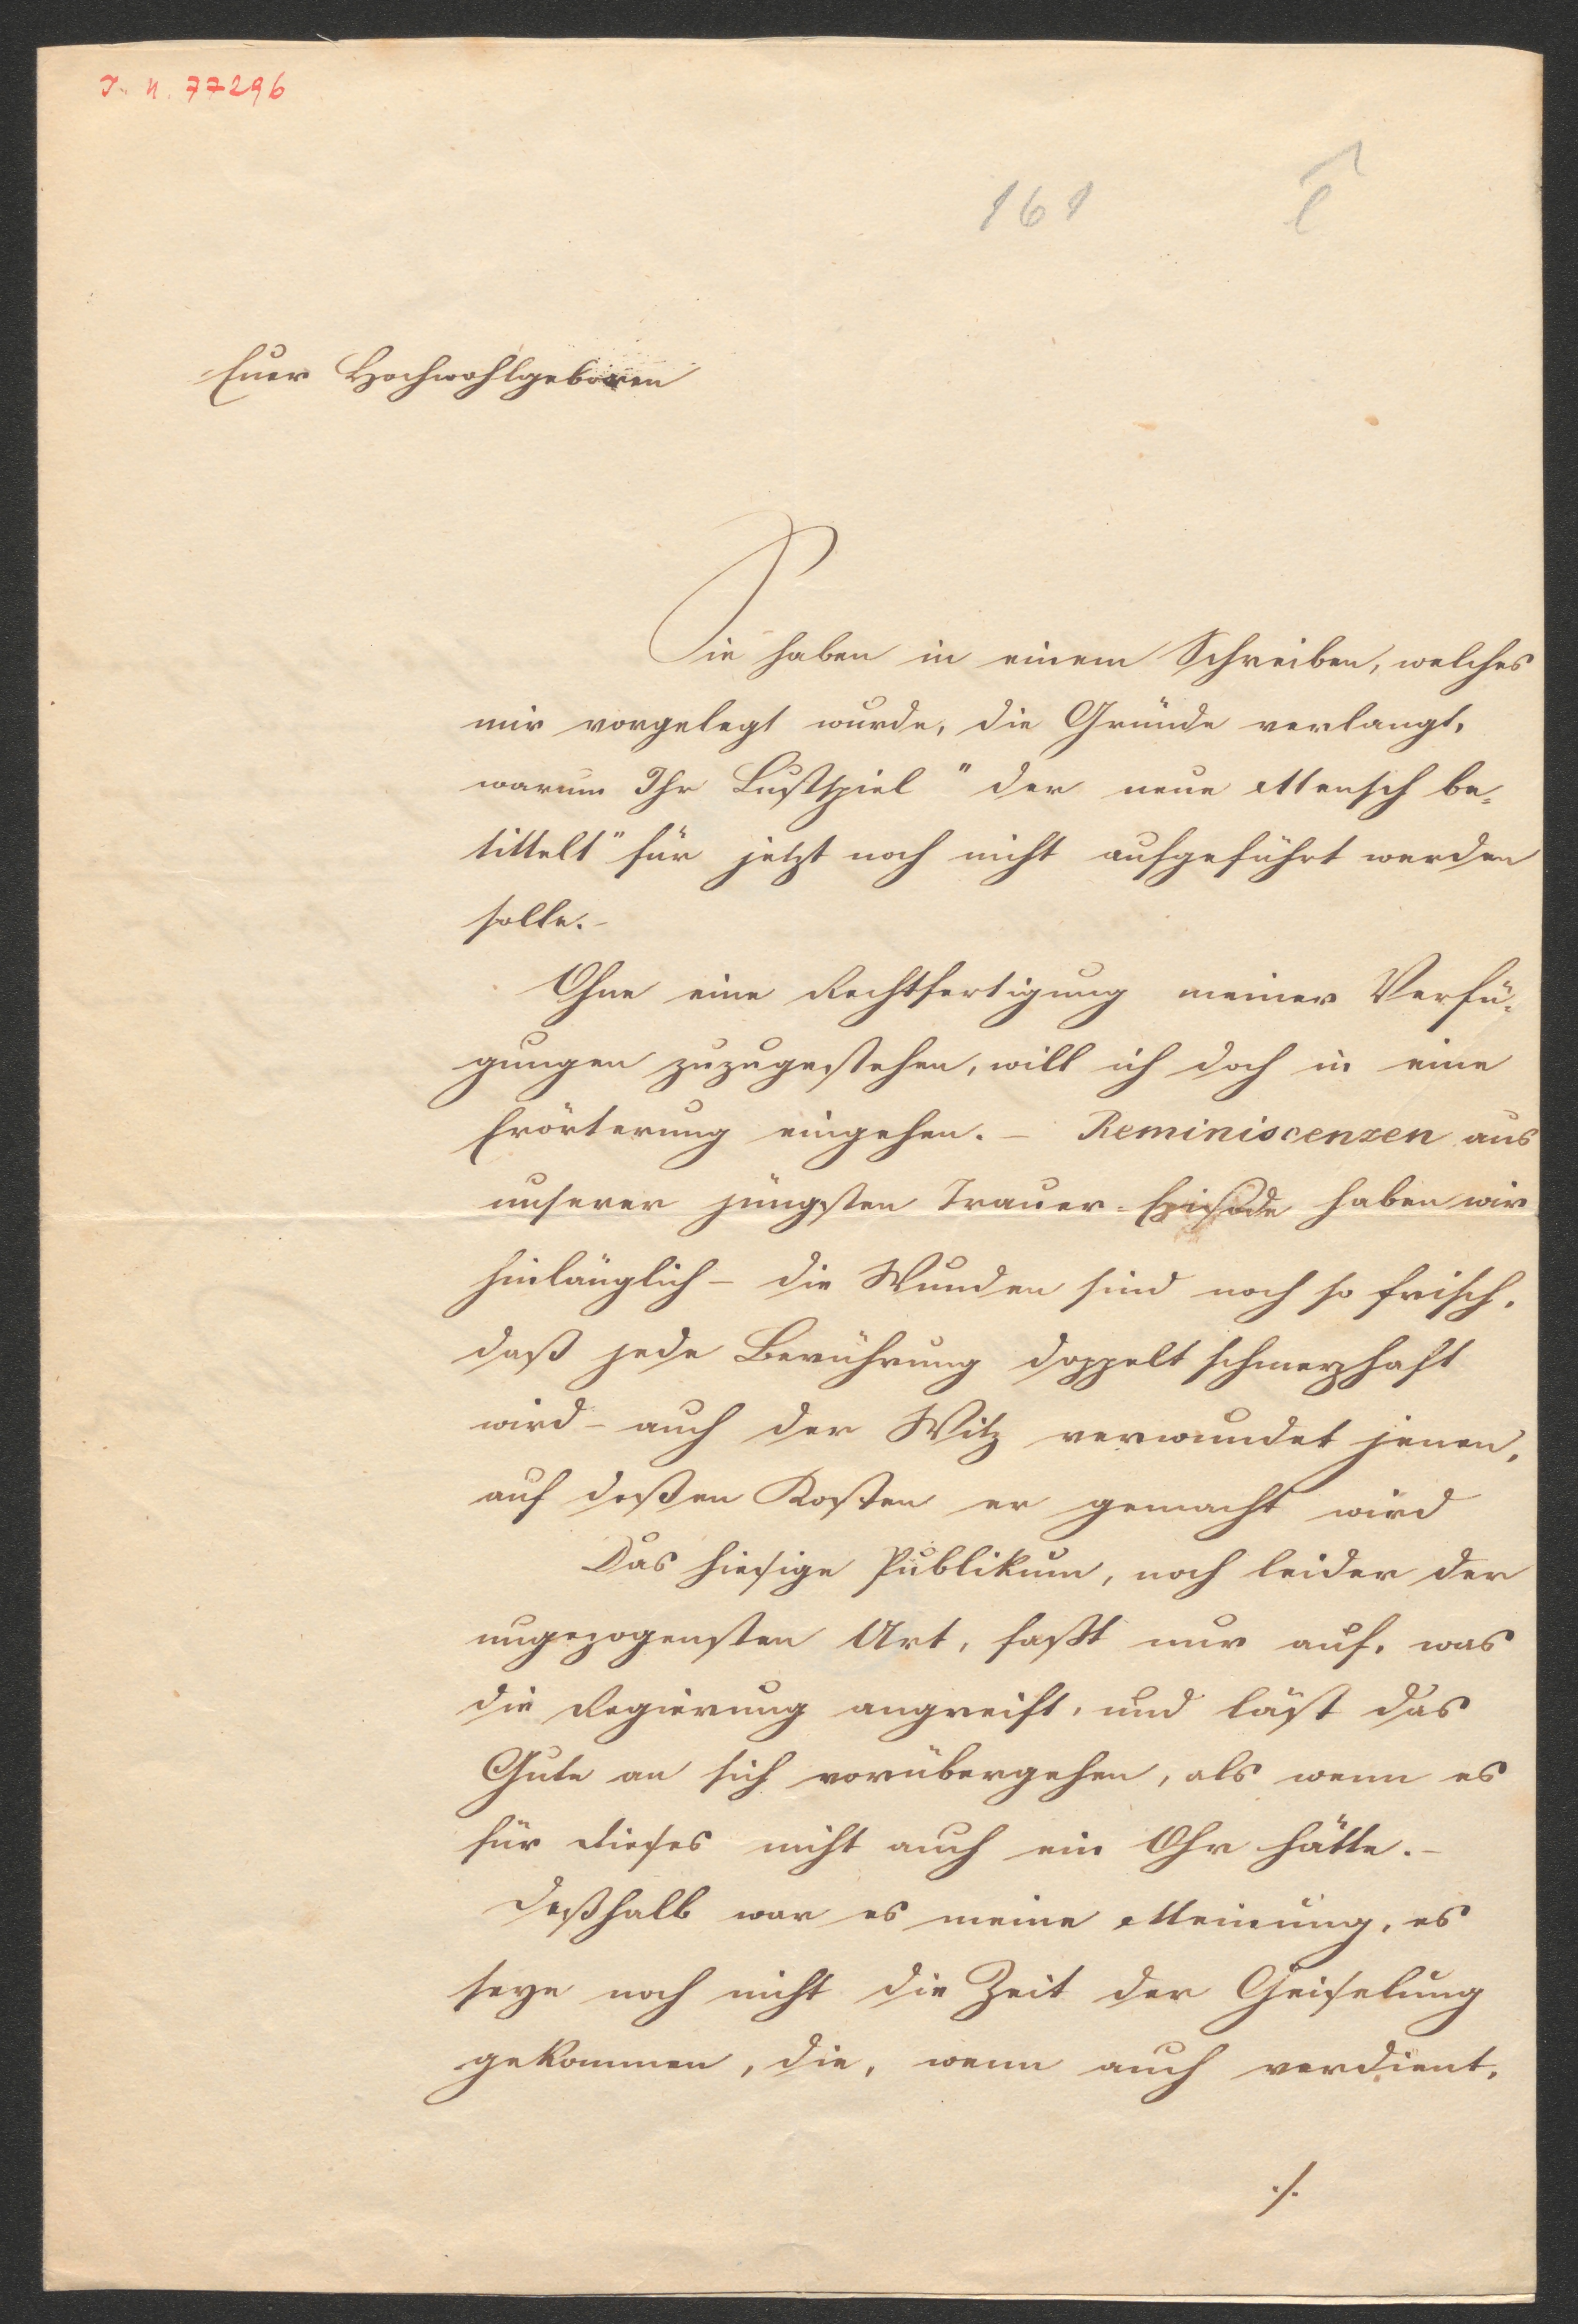 I. N. 77296
161
Euer Hochwohlgeboren
Sie haben in einem Schreiben, welches
mir vorgelegt wurde, die Gründe verlangt,
warum Ihr Lustspiel "der neue Mensch be-
tittelt" für jetzt noch nicht aufgeführt werden
solle.-
Ohne eine Rechtfertigung meiner Verfü-
gungen zuzugestehen, will ich doch in eine
Erörterung eingehen. – Reminiscenzen aus
unserer jüngsten Trauer-Episode haben wir
hinlänglich – die Wunden sind noch so frisch,
daß jede Berührung doppelt schmerzhaft
wird – auch der Witz verwundet jenen,
auf deßen Kosten er gemacht wird
Das hiesige Publikum, noch leider der
ungezogensten Art, faßt nur auf, was
die Regierung angreift, und läßt das
Gute an sich vorübergehen, als wenn es
für dieses nicht auch ein Ohr hätte.-
Deßhalb war es meine Meinung, es
seye noch nicht die Zeit der Geiselung
gekommen, die, wenn auch verdient,
./.